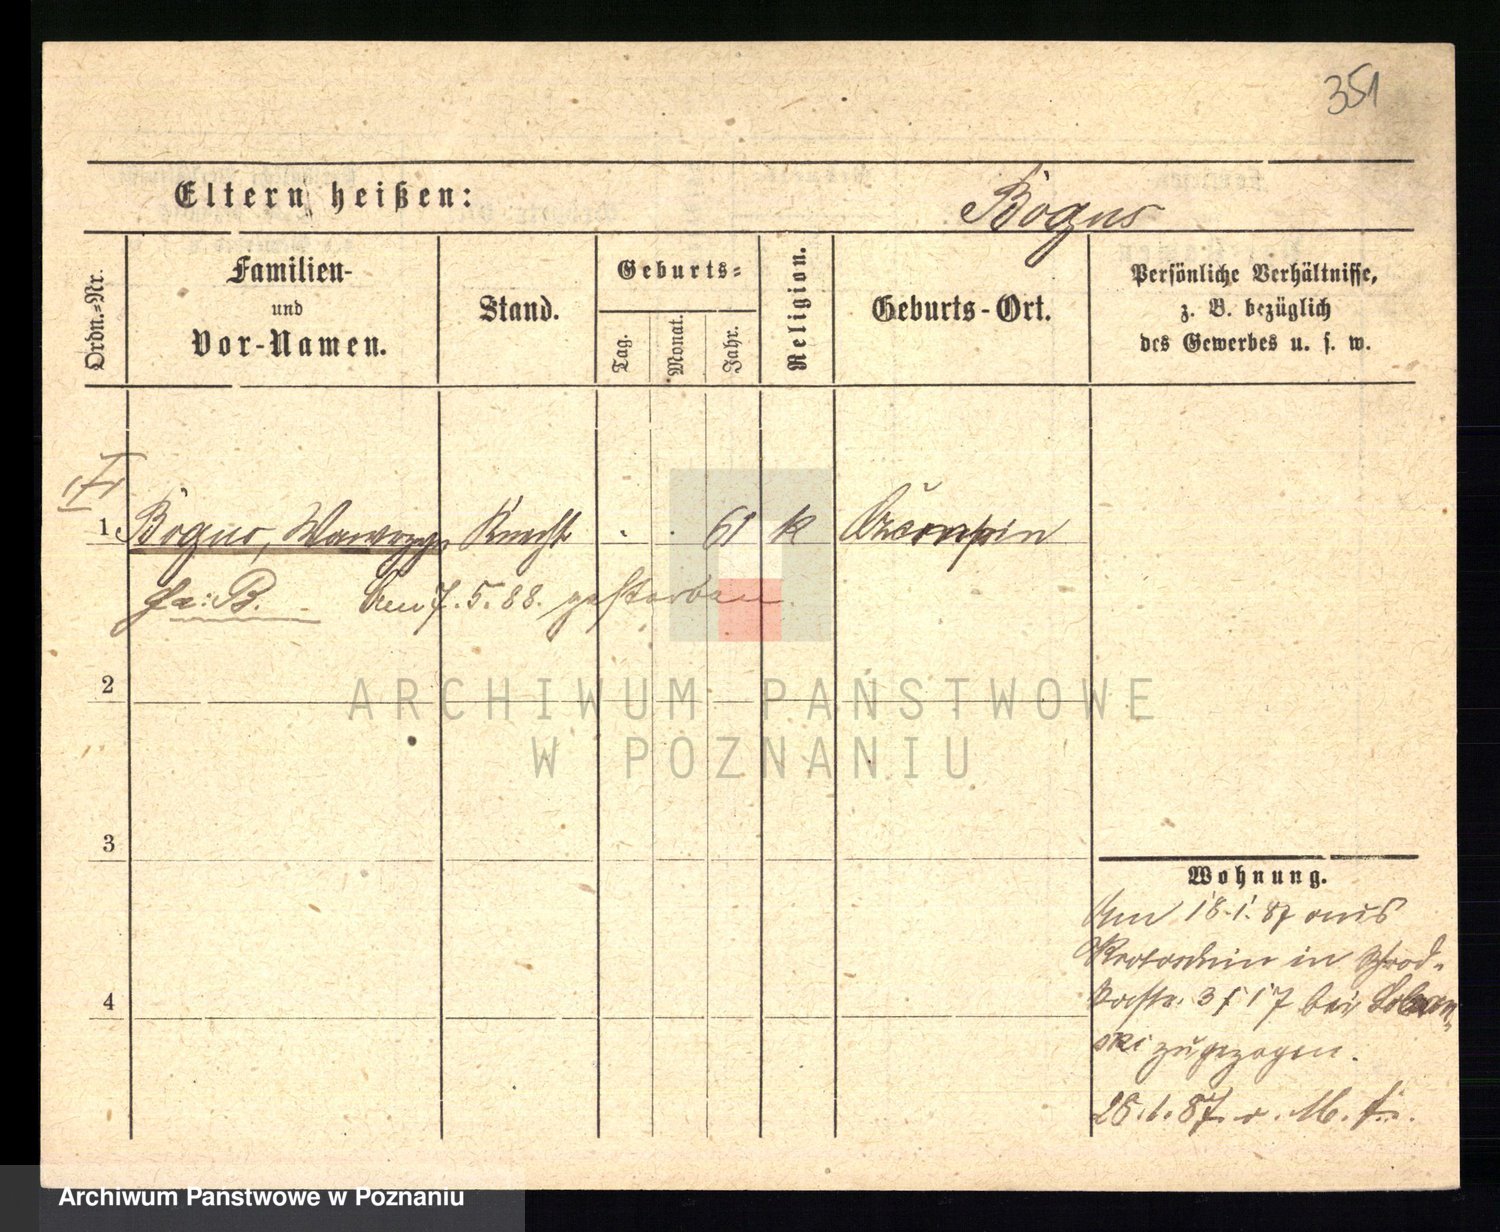 351
Eltern heißen:
Bogus
Ordn.-Nr.
Familien-
und
Vor-Namen.
Stand.
Geburts-
Tag.
Monat.
Jahr.
Religion.
Geburts-Ort.
Persönliche Verhältnisse,
z. B. bezüglich
des Gewerbes u. s. w.
1 Bogus, Wawrzyn Knecht 61 k
B. Am 7. 5. 88. gestorben.
2
ARCHIWUM PAŃSTWOWE
W POZNANIU
3
4
Wohnung.
Am 18.1.87 aus
Krotoschin in Grod-
3 f 17 bei
ski zugezogen.
28.1.87.
Archiwum Państwowe w Poznaniu